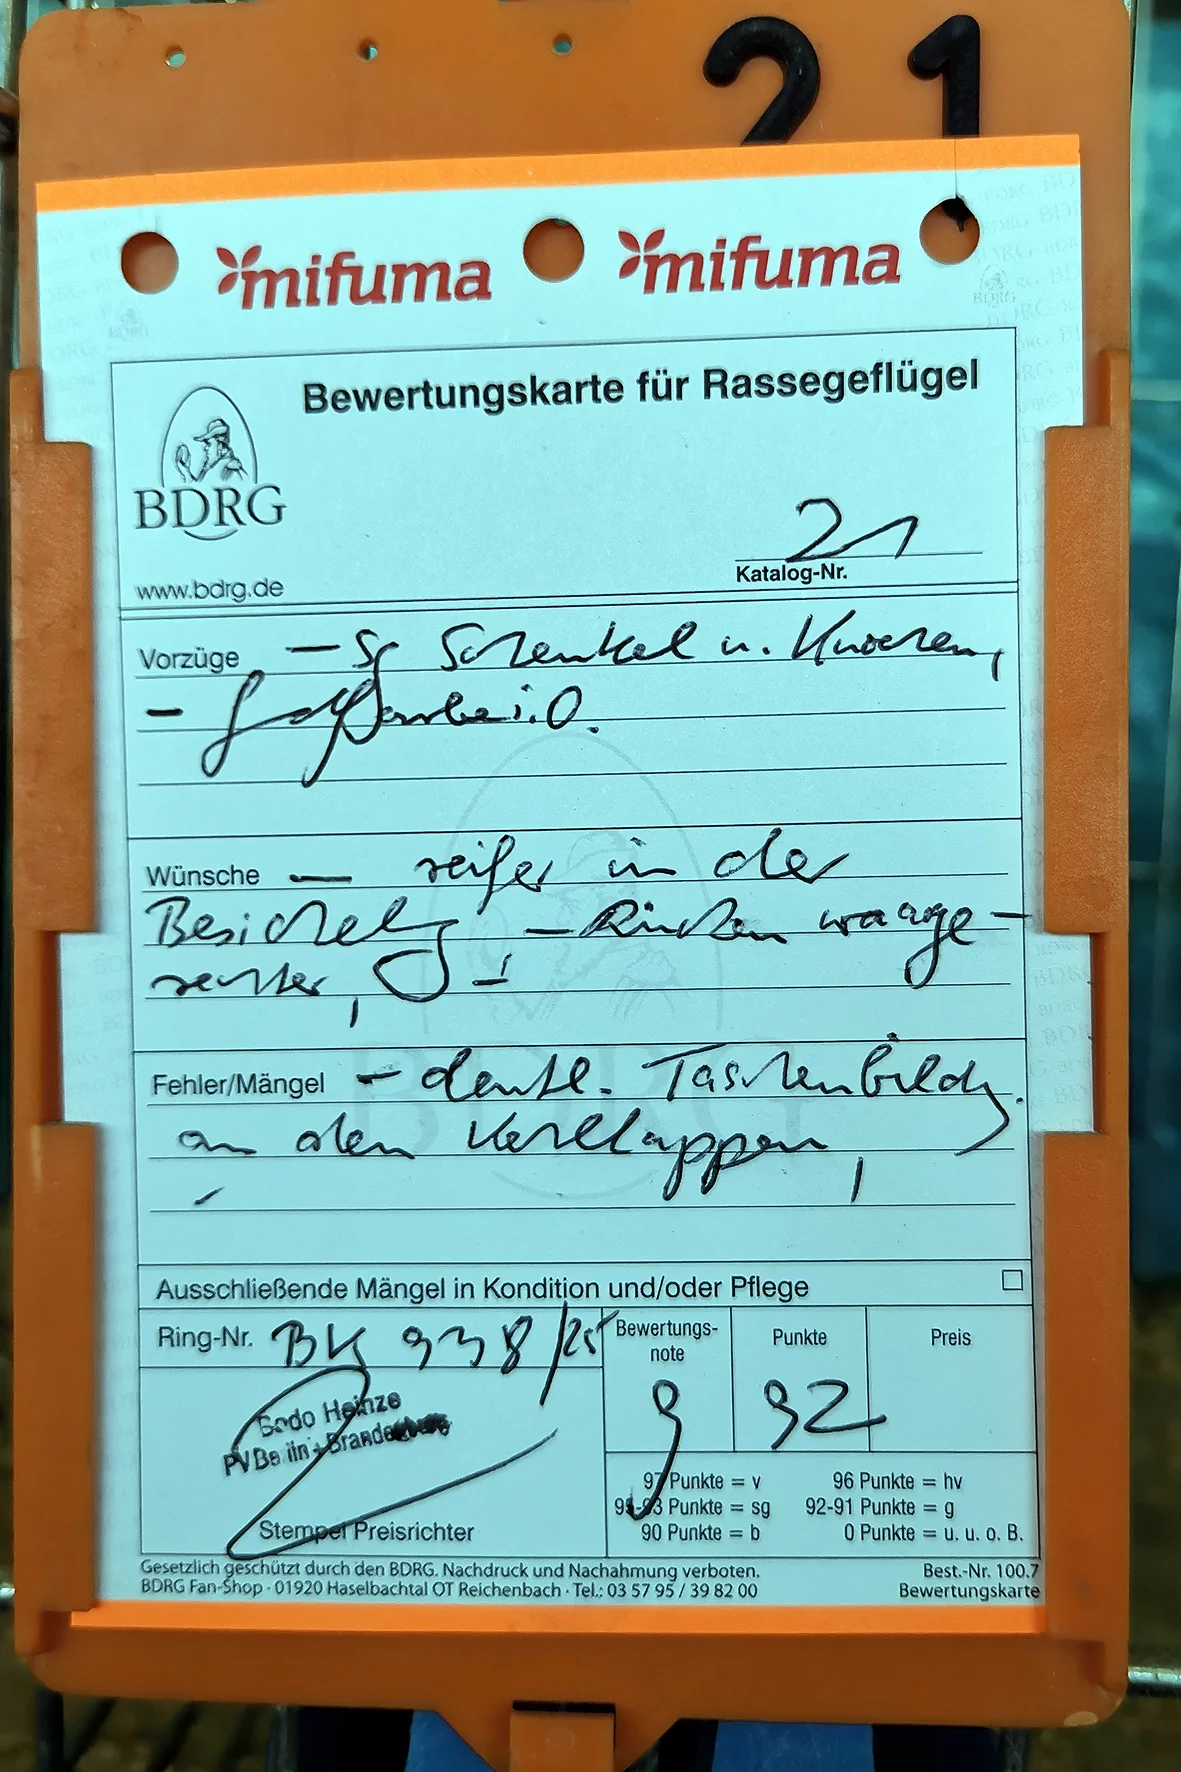 21
mifuma mifuma
Bewertungskarte für Rassegeflügel
BDRG
www.bdrg.de
21
Katalog-Nr.
Vorzüge - Sg Schenkel u. Knochen,
- i.O.
Wünsche - reifer in der
Besichelg - Rücken waage-
rechter,
Fehler/Mängel - deutl. Taschenbildg.
an den Kehllappen,
Ausschließende Mängel in Kondition und/oder Pflege
Ring-Nr. BK 938/25
Bewertungs-
note
g
Punkte
92
Preis
Bodo Heinze
PV Berlin-Brandenburg
Stempel Preisrichter
97 Punkte = v 96 Punkte = hv
95-93 Punkte = sg 92-91 Punkte = g
90 Punkte = b 0 Punkte = u. u. o. B.
Gesetzlich geschützt durch den BDRG. Nachdruck und Nachahmung verboten. Best.-Nr. 100.7
BDRG Fan-Shop · 01920 Haselbachtal OT Reichenbach · Tel.: 03 57 95 / 39 82 00 Bewertungskarte